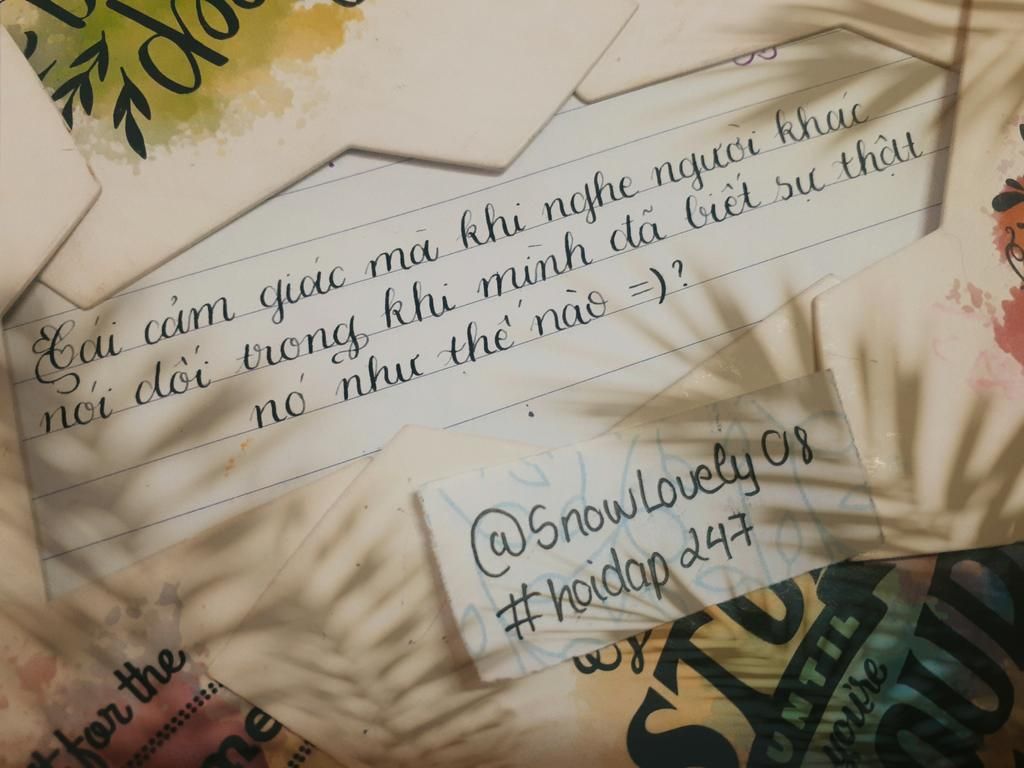 Cái cảm giác mà khi nghe người khác
nói dối trong khi mình đã biết sự thật
nó như thế nào =)?
@SnowLovely08
#hoidap247
for the
me
STOP
UNTIL
you're